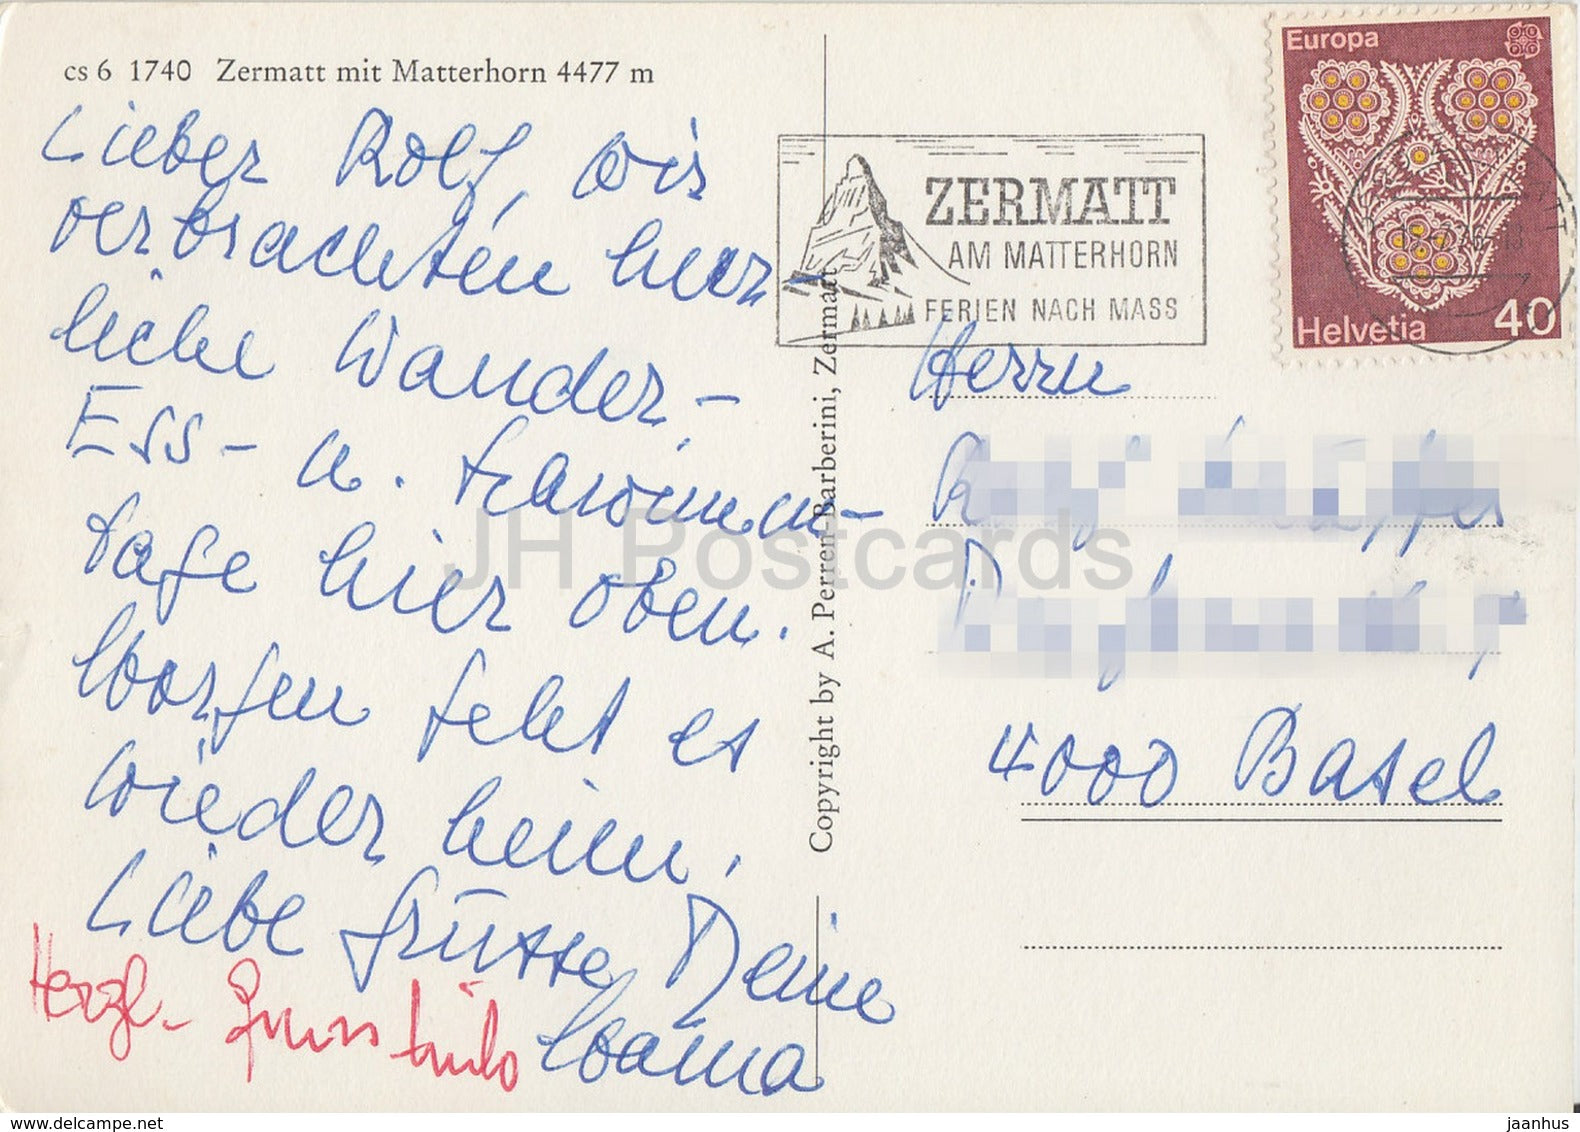 cs 6 1740 Zermatt mit Matterhorn 4477 m
Lieber Rolf, wir
verbrachten herr-
liche Wander-,
Ess- u. Schwimm-
tage hier oben.
Morgen geht es
wieder heim.
Liebe Grüsse, Deine
Mama
Herzl. Gruss
Copyright by A. Perren-Barberini, Zermatt
ZERMATT
AM MATTERHORN
FERIEN NACH MASS
Europa
Helvetia 40
Herrn
4000 Basel
JH Postcards
delcampe.net
jaanhus